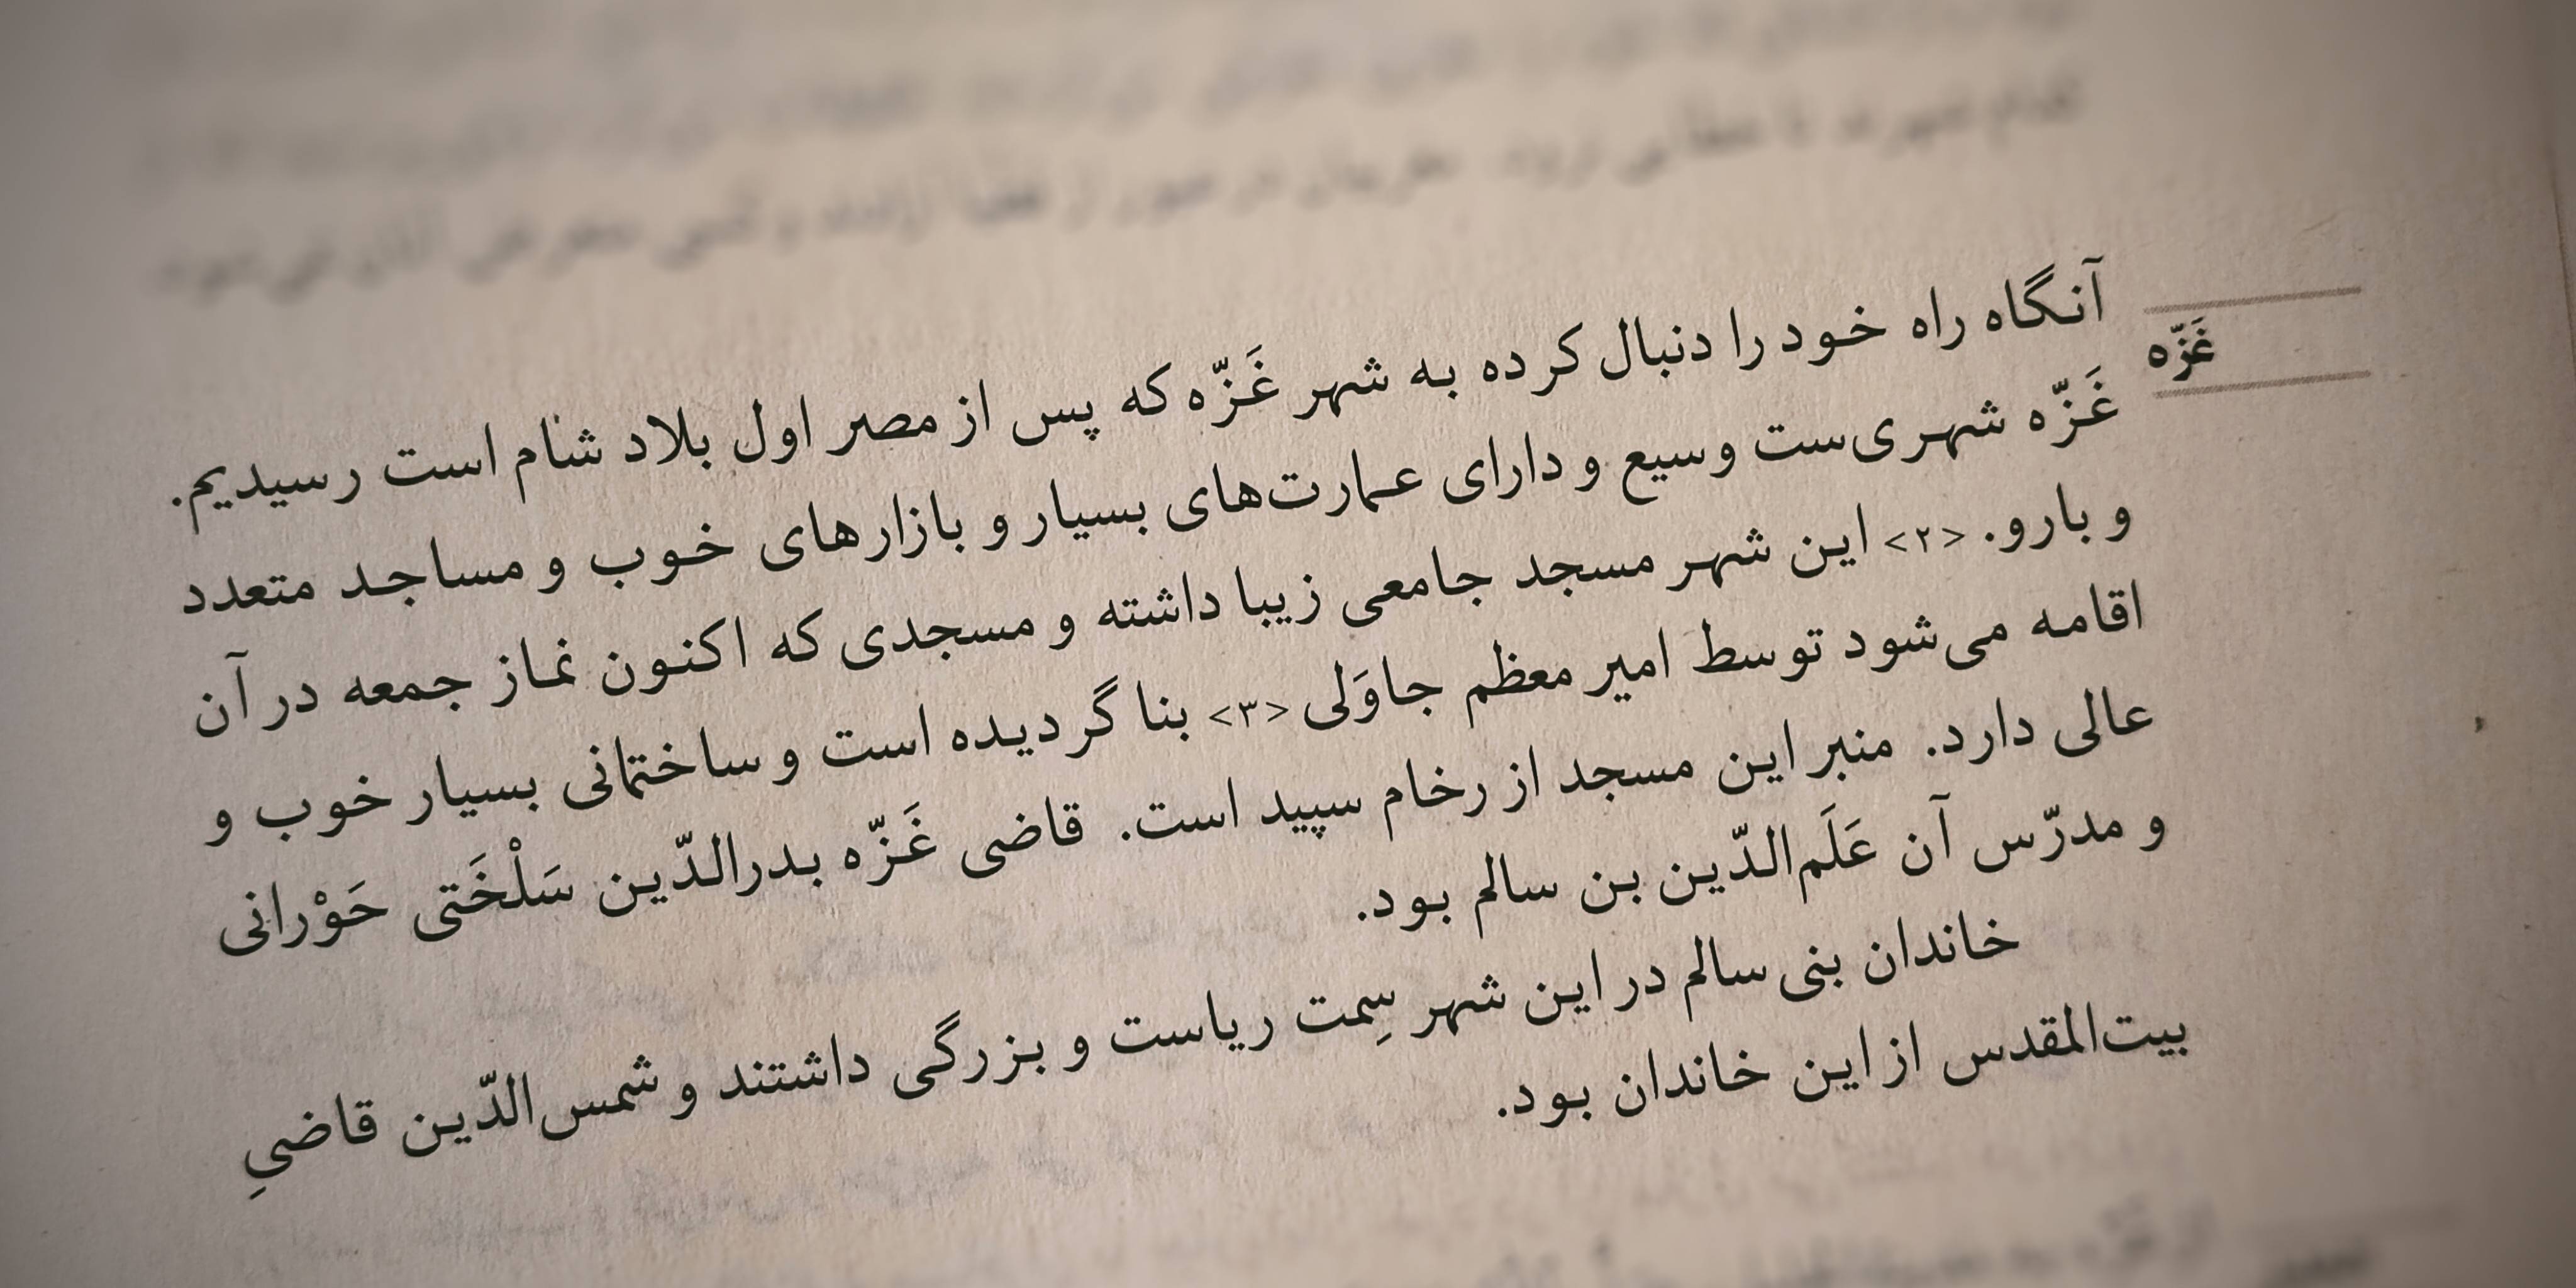 غَزّه
آنگاه راه خود را دنبال کرده به شهر غَزّه که پس از مصر اول بلاد شام است رسیدیم.
غَزّه شهری‌ست وسیع و دارای عمارت‌های بسیار و بازارهای خوب و مساجد متعدد
و بارو. <۲> این شهر مسجد جامعی زیبا داشته و مسجدی که اکنون نماز جمعه در آن
اقامه می‌شود توسط امیر معظم جاوَلی <۳> بنا گردیده است و ساختمانی بسیار خوب و
عالی دارد. منبر این مسجد از رخام سپید است. قاضی غَزّه بدرالدّین سَلْخَتی حَوْرانی
و مدرّس آن عَلَم‌الدّین بن سالم بود.
خاندان بنی سالم در این شهر سِمت ریاست و بزرگی داشتند و شمس‌الدّین قاضیِ
بیت‌المقدس از این خاندان بود.